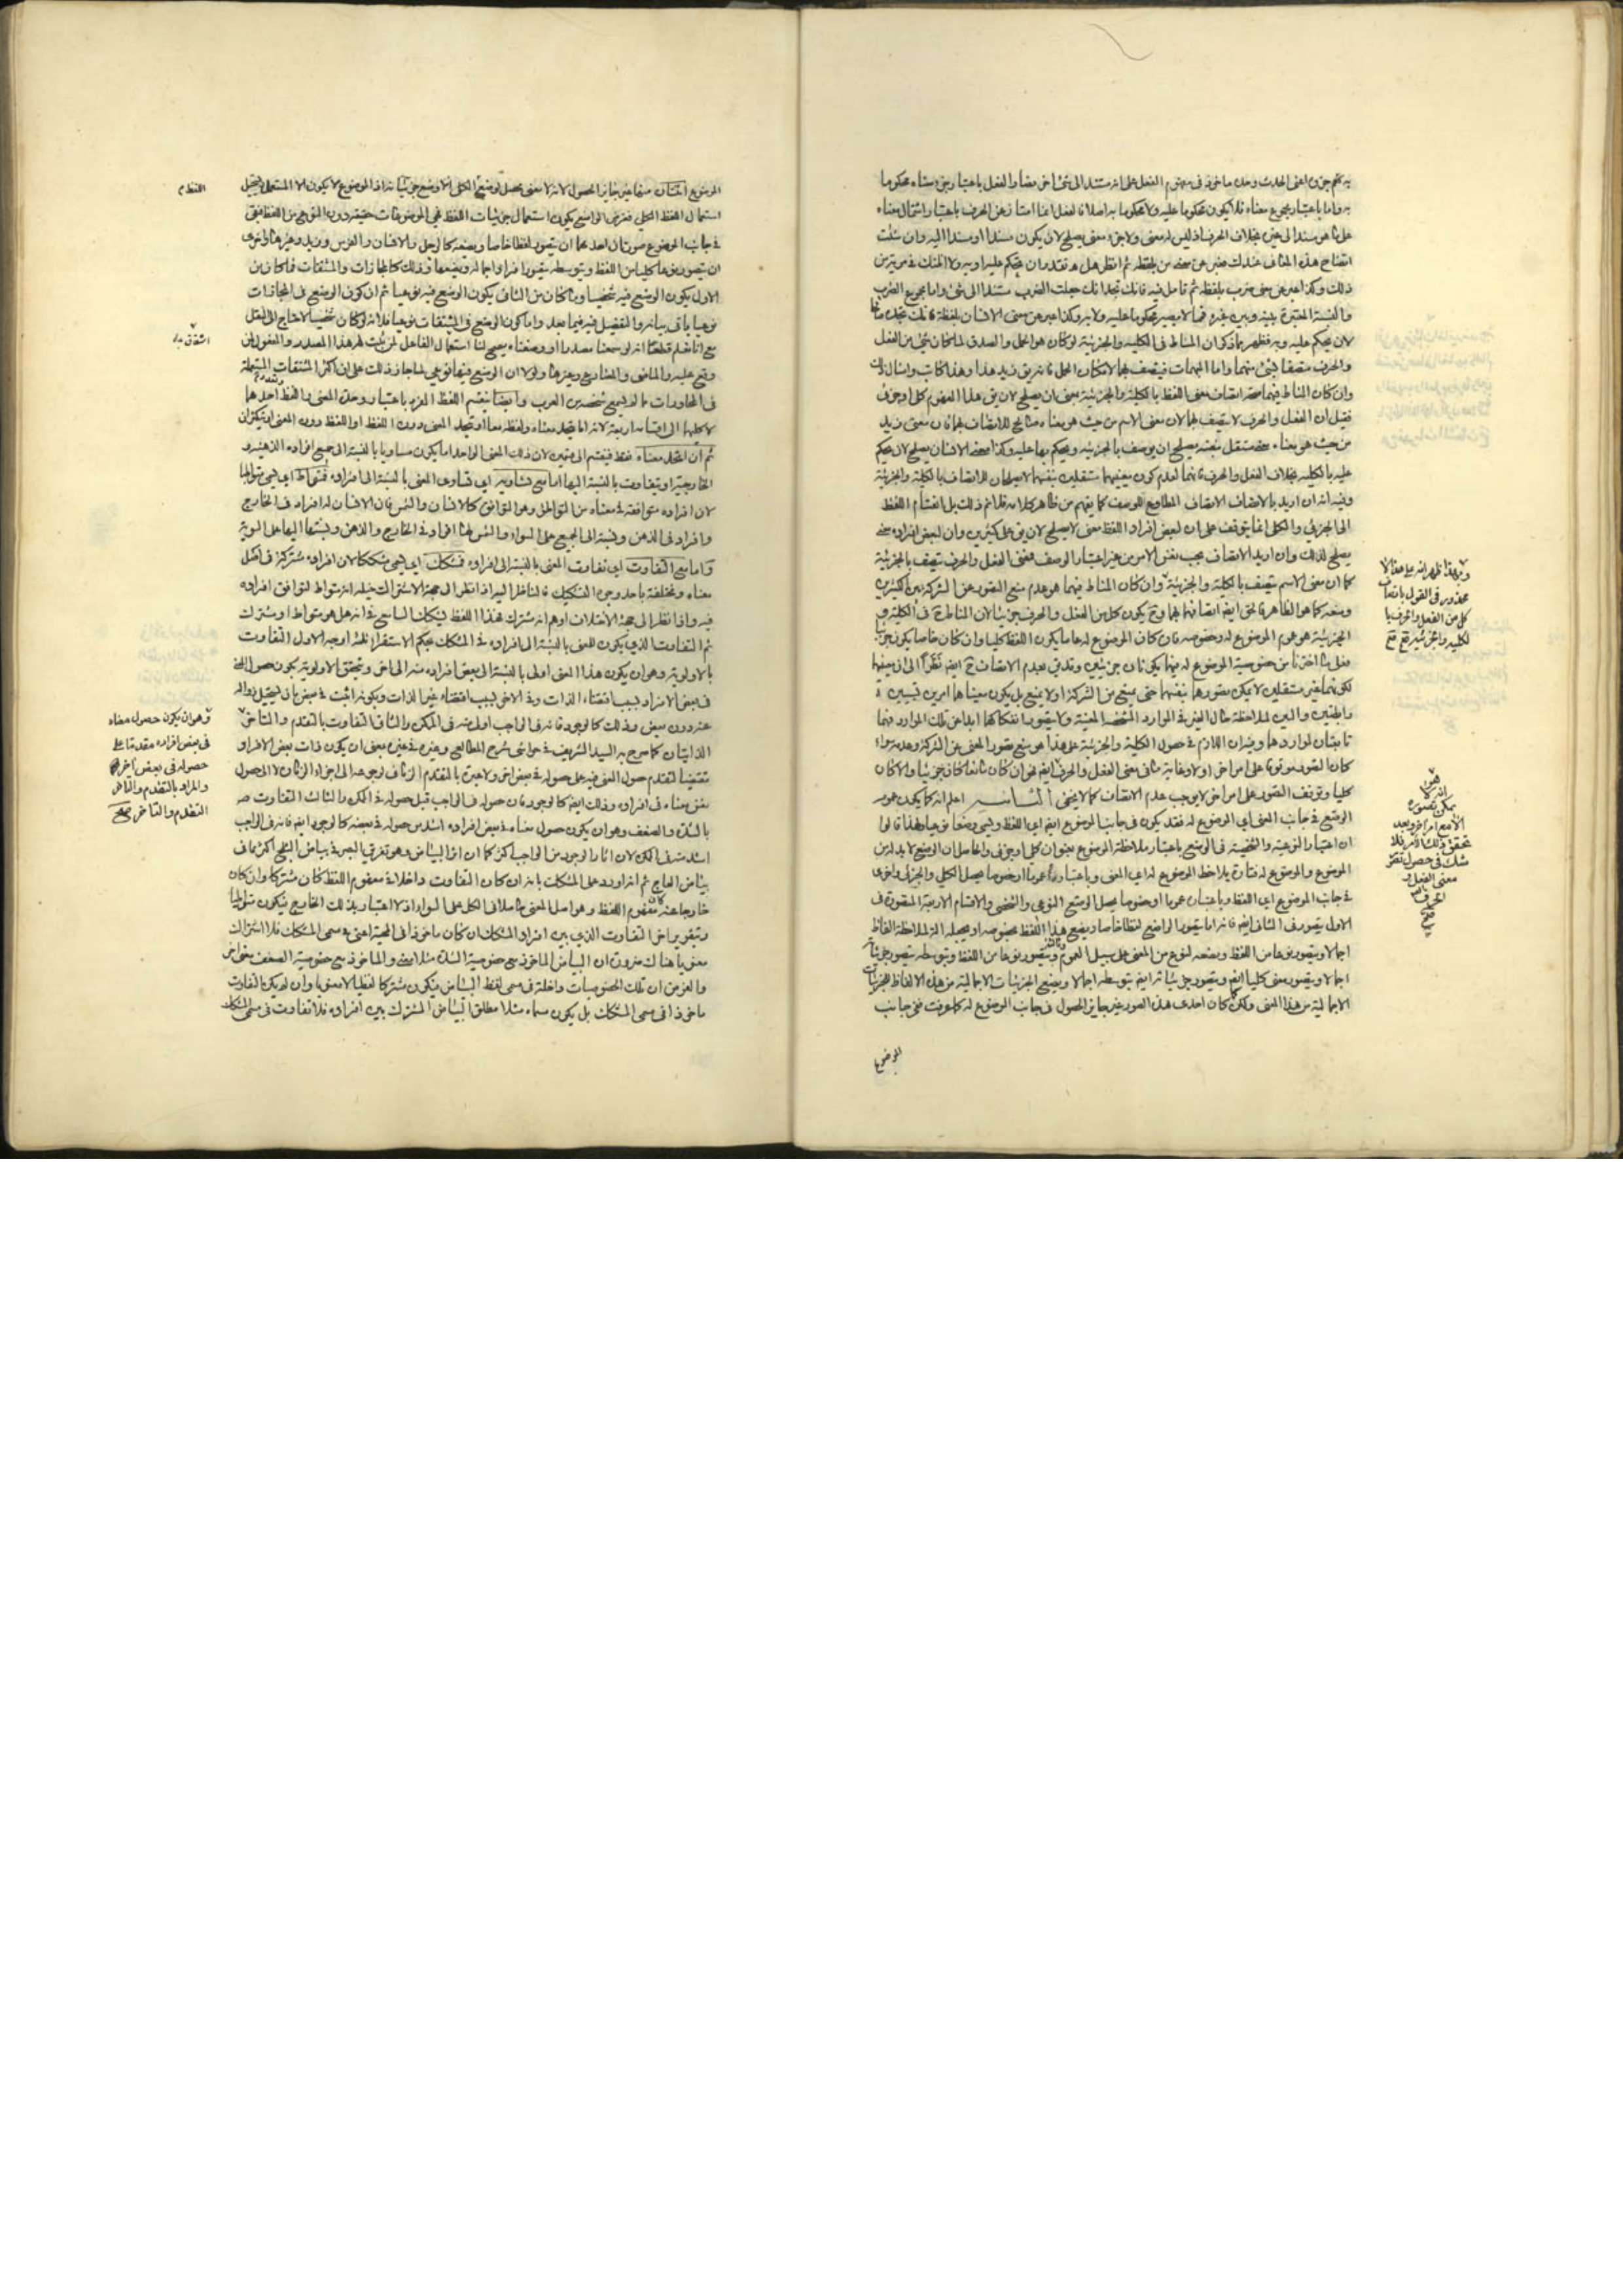 به كنهم جزئه اعنى الحدث وحده ماخوذ فى مفهوم الفعل على انه مستند الى شئ اخر فصار الفعل باعتبار جزء معناه محكوما
به واما باعتبار مجموع معناه فلا يكون محكوما عليه ولا محكوما به اصلا فالفعل انما امتاز عن الحرف باعتبار اشتمال معناه
على ما هو مسند الى غيره بخلاف الحرف اذ ليس له معنى ولا جزء معنى يصلح لان يكون مسندا او مسندا اليه وان شئت
اتضاح هذه المعانى عندك فعبر عن معنى من بلفظه ثم انظر هل تقدر ان تحكم عليه او به ولا اظنك فى مرية من
ذلك وكذا عبر عن معنى ضرب بلفظه ثم تامل فيه فانك تجد انك جعلت الضرب مستندا الى شئ واما مجموع الضرب
والنسبة المعتبرة بينه وبين غيره فمما لا يصير محكوما عليه ولا به وكذا عبر عن معنى الانسان بلفظه فانك تجده صالحا
لان يحكم عليه وبه فظهر بما ذكر ان المناط فى الكلية والجزئية لو كان هو الحمل والصدق لما كان شئ من الفعل
والحرف متصفا بشئ منهما واما المبهمات فيتصف بهما لامكان الحمل فانه يق زيد هذا وهذا كاتب وامثال ذلك
وان كان المناط فيهما صحة اتصاف معنى اللفظ بالكلية والجزئية بمعنى ان يصلح لان يق هذا المفهوم كلى او جزئى
فقيل ان الفعل والحرف لا يتصف بهما لان معنى الاسم من حيث هو معناه صالح للاتصاف بهما فان معنى زيد
من حيث هو معناه معنى مستقل بنفسه يصلح ان يوصف بالجزئية ويحكم بها عليه وكذا معنى الانسان يصلح لان يحكم
عليه بالكلية بخلاف الفعل والحرف فانهما لعدم كون معنييهما مستقلين بنفسهما لا يصلحان للاتصاف بالكلية والجزئية
وفيه انه ان اريد بالاتصاف الاتصاف المطاوع للوصف كما يفهم من ظاهر كلامه فلا نم ذلك بل انقسام اللفظ
الى الجزئى والكلى انما يتوقف على ان لبعض افراد اللفظ معنى لا يصلح لان يق على كثيرين وان لبعض افراده معنى
يصلح لذلك وان اريد الاتصاف بحسب نفس الامر من غير اعتبار الوصف فمعنى الفعل والحرف يتصف بالجزئية
كما ان معنى الاسم يتصف بالكلية والجزئية وان كان المناط فيهما هو عدم منع التصور عن الشركة بين كثيرين
ومنعه كما هو الظاهر فالحق ايضا اتصافهما بهما وح يكون كل من الفعل والحرف جزئيا لان المناط ح فى الكلية و
الجزئية هو عموم الموضوع له وخصوصه فان كان الموضوع له عاما يكون اللفظ كليا وان كان خاصا يكون جزئيا
لكونهما غير مستقلين لا يمكن تصورهما بنفسهما حتى يمنع من الشركة اولا يمنع بل يكون معناهما امرين نسبيين
كليا وتوقف التصور على امر اخر لا يوجب عدم الاتصاف كما لا يخفى الخامس اعلم انه كما يكون عموم
الوضع فى جانب المعنى اى الموضوع له فقد يكون فى جانب الموضوع ايضا اى اللفظ ويسمى وضعا نوعيا ولهذا قالوا
ان اعتبار النوعية والشخصية فى الوضع باعتبار ملاحظة الموضوع بعنوان كلى او جزئى والحاصل ان الوضع لا بد له من
الموضوع والموضوع له فتارة يلاحظ الموضوع له اى المعنى وباعتباره عموما او خصوصا يحصل الكلى والجزئى واخرى
فى جانب الموضوع اى اللفظ وباعتباره عموما او خصوصا يحصل الوضع النوعى والشخصى والاقسام الاربعة المتصورة فى
الاول يتصور فى الثانى ايضا فانه اما يتصور الواضع لفظا خاصا ويضع هذا اللفظ بخصوصه او يجعله الة لملاحظة الفاظ
الاجمالية من هذا المعنى ولكن كان احدى هذه الصور غير جايز الحصول فى جانب الموضوع له كما عرفت ففى جانب
الموضوع
وبهذا ظهر انه على هذا لا
محذور فى القول باتصاف
كل من الفعل والحرف با
لكلية والجزئية مع
هو
انه لا
يمكن تصوره
الا مع امر اخر وبعد
تحقق ذلك الامر فلا
شك فى حصول تصور
معنى الفعل و
الحرف
صح
الموضوع اثنتان منها غير جايز الحصول لانه لا معنى يحصل لوضع الكلى الا وضع جزئياته اذ الموضوع لا يكون الا المستعمل ويستحيل
استعمال اللفظ الكلى فغرض الواضع يكون استعمال جزئيات اللفظ فهى الموضوعات حقيقة دون النوعى من اللفظ فبقى
فى جانب الموضوع صورتان احدهما ان يتصور لفظا خاصا ويضعه كالرجل والانسان والفرس وزيد وغيرها واخرى
ان يتصور نوعا كليا من اللفظ وبتوسطه يتصور افراده اجمالا ويضعها وذلك كالمجازات والمشتقات فما كان من
الاول يكون الوضع فيه شخصيا وما كان من الثانى يكون الوضع فيه نوعيا ثم ان كون الوضع فى المجازات
نوعيا ياتى بيانه والتفصيل فيه فيما بعد واما كون الوضع فى المشتقات نوعيا فلانه لو كان شخصيا لاحتاج الى النقل
مع انا نعلم قطعا انه لو سمعنا مصدرا او وضعناه يصح لنا استعمال الفاعل لمن ثبت له هذا المصدر والمفعول لمن
وقع عليه والماضى والمضارع وغيرها ولولا ان الوضع فيها نوعى لما جاز ذلك على ان اكثر المشتقات المستعملة
فى المحاورات ما لم يسمع شخصه من العرب وايضا ينقسم اللفظ المفرد باعتبار وحدة المعنى واللفظ احدهما
لا كليهما الى اقسام اربعة لانه اما يتحد معناه ولفظه معا او يتحد المعنى دون اللفظ او اللفظ دون المعنى او يتكثران
ثم ان اتحد معناه فقط فينقسم الى قسمين لان ذلك المعنى الواحد اما يكون مساويا بالنسبة الى جميع افراده الذهنية و
الخارجية او يتفاوت بالنسبة اليها اما مع تساويه اى تساوى المعنى بالنسبة الى افراده فمتواط اى يسمى متواطيا
لان افراده متوافقة فى معناه من التواطى وهو التوافق كالانسان والشمس فان الانسان له افراد فى الخارج
وافراد فى الذهن ونسبته الى الجميع على السواء والشمس لها افراد فى الخارج والذهن ونسبتها اليها على السوية
واما مع التفاوت اى تفاوت المعنى بالنسبة الى افراده فمشكك اى يسمى مشككا لان افراده مشتركة فى اصل
معناه ومختلفة باحد وجوه التشكيك فالناظر اليه اذا نظر الى جهة الاشتراك خيله انه متواط لتوافق افراده
فيه واذا نظر الى جهة الاختلاف اوهم انه مشترك فهذا اللفظ يشكك السامع فى انه هل هو متواط او مشترك
ثم التفاوت الذى يكون للمعنى بالنسبة الى افراده فى المشكك بحكم الاستقراء ثلثة اوجه الاول التفاوت
بالاولوية وهو ان يكون هذا المعنى اولى بالنسبة الى بعض افراده منه الى اخر وتحقق الاولوية بكون حصول المعنى
فى بعض الافراد بسبب اقتضاء الذات وفى الاخر بسبب اقتضاء غير الذات وبكونه اثبت فى بعض بان يستحيل زواله
عنه دون بعض وذلك كالوجود فانه فى الواجب اولى منه فى الممكن والثانى التفاوت بالتقدم والتاخر
الذاتيان كما صرح به السيد الشريف فى حواشى شرح المطالع وغيره فى غيره بمعنى ان يكون ذات بعض الافراد
معنى معناه فى افراده وذلك ايضا كالوجود فان حصوله فى الواجب قبل حصوله فى الممكن والثالث التفاوت
بالشدة والضعف وهو ان يكون حصول معناه فى بعض افراده اشد من حصوله فى بعضه كالوجود ايضا فانه فى الواجب
اشد منه فى الممكن لان اثار الوجود من الواجب اكثر كما ان اثر البياض وهو تفرق البصر فى بياض الثلج اكثر مما فى
بياض العاج ثم انه اورد على المشكك بانه ان كان التفاوت داخلا فى مفهوم اللفظ كان مشتركا وان كان
خارجا عنه كان مفهوم اللفظ وهو اصل المعنى حاصلا فى الكل على السواء اذ لا اعتبار بذلك الخارج فيكون متواطيا
وبتقرير اخر التفاوت الذى بين افراد المشكك ان كان ماخوذا فى الماهية اعنى فى مسمى المشكك فلا اشتراك
معنويا هناك ضرورة ان البياض الماخوذ مع خصوصية الشدة مثلا معنى والماخوذ مع خصوصية الضعف معنى اخر
والفرض ان تلك الخصوصيات داخلة فى مسمى لفظ البياض فيكون مشتركا لفظيا لا معنويا وان لم يكن التفاوت
ماخوذا فى مسمى المشكك بل يكون مسماه مثلا مطلق البياض المشترك بين افراده فلا تفاوت فى مسمى المشكك
اللفظ م
وهو ان يكون حصول معناه
فى بعض افراده مقدما على
حصوله فى بعض اخر
والمراد بالتقدم والتاخر
التقدم والتاخر صح